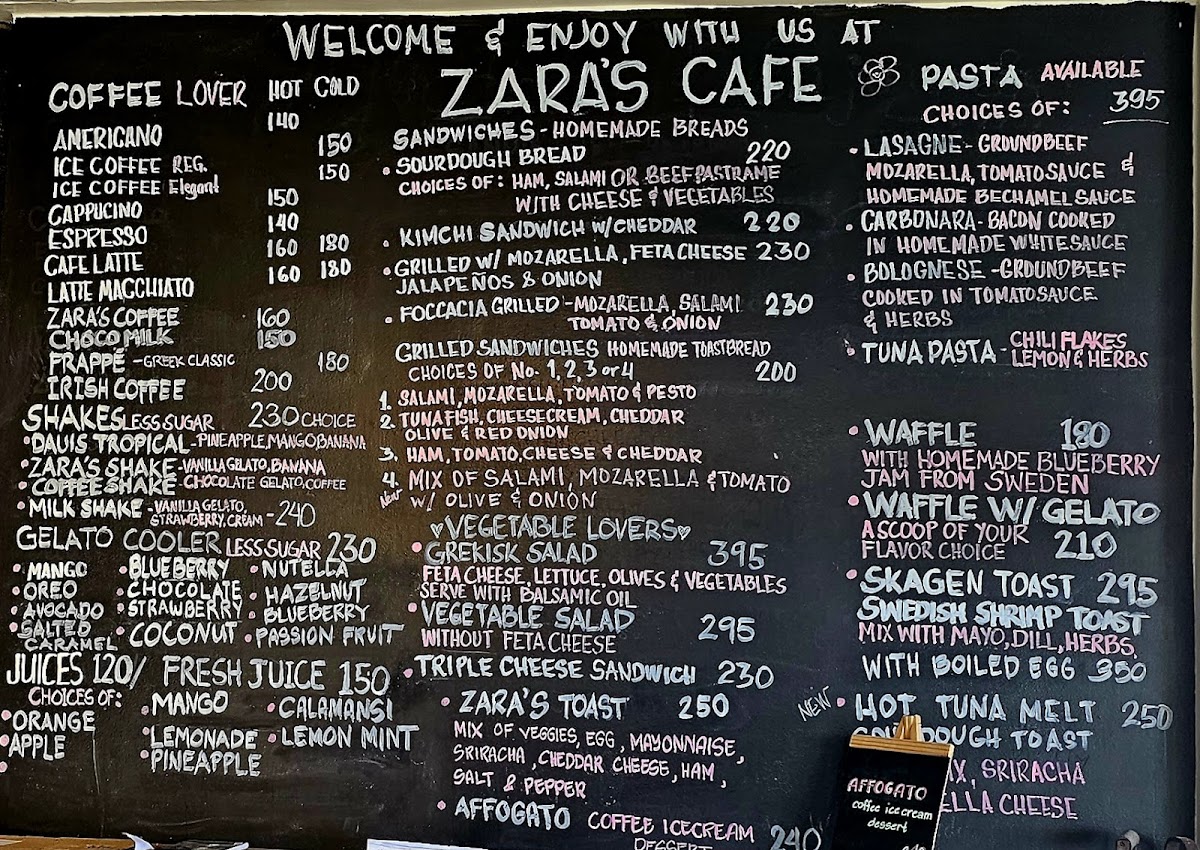 WELCOME & ENJOY WITH US AT
ZARA'S CAFE
COFFEE LOVER HOT COLD
140
AMERICANO 150
ICE COFFEE REG. 150
ICE COFFEE Elegant
150
CAPPUCINO
140
ESPRESSO
160 180
CAFE LATTE
160 180
LATTE MACCHIATO
ZARA'S COFFEE 160
CHOCO MILK 150
FRAPPÉ - GREEK CLASSIC 180
IRISH COFFEE 200
SHAKES LESS SUGAR 230 CHOICE
• DAUIS TROPICAL - PINEAPPLE, MANGO, BANANA
• ZARA'S SHAKE - VANILLA GELATO, BANANA
• COFFEE SHAKE - CHOCOLATE GELATO, COFFEE
• MILK SHAKE - VANILLA GELATO,
STRAWBERRY, CREAM - 240
GELATO COOLER LESS SUGAR 230
• MANGO • BLUEBERRY • NUTELLA
• OREO • CHOCOLATE • HAZELNUT
• AVOCADO • STRAWBERRY • BLUEBERRY
• SALTED
CARAMEL • COCONUT • PASSION FRUIT
JUICES 120/ FRESH JUICE 150
CHOICES OF:
• ORANGE • MANGO • CALAMANSI
• APPLE • LEMONADE • LEMON MINT
• PINEAPPLE
SANDWICHES - HOMEMADE BREADS
• SOURDOUGH BREAD 220
CHOICES OF: HAM, SALAMI OR BEEF PASTRAME
WITH CHEESE & VEGETABLES
• KIMCHI SANDWICH W/CHEDDAR 220
• GRILLED W/ MOZARELLA, FETA CHEESE 230
JALAPEÑOS & ONION
• FOCCACIA GRILLED - MOZARELLA, SALAMI 230
TOMATO & ONION
GRILLED SANDWICHES HOMEMADE TOAST BREAD
CHOICES OF No. 1, 2, 3 or 4 200
1. SALAMI, MOZARELLA, TOMATO & PESTO
2. TUNAFISH, CHEESECREAM, CHEDDAR
OLIVE & RED ONION
3. HAM, TOMATO, CHEESE & CHEDDAR
4. MIX OF SALAMI, MOZARELLA & TOMATO
New W/ OLIVE & ONION
♡VEGETABLE LOVERS♡
• GREKISK SALAD 395
FETA CHEESE, LETTUCE, OLIVES & VEGETABLES
SERVE WITH BALSAMIC OIL
• VEGETABLE SALAD 295
WITHOUT FETA CHEESE
• TRIPLE CHEESE SANDWICH 230
• ZARA'S TOAST 250
MIX OF VEGGIES, EGG, MAYONNAISE,
SRIRACHA, CHEDDAR CHEESE, HAM,
SALT & PEPPER
• AFFOGATO COFFEE ICECREAM 240
DESSERT
PASTA AVAILABLE
CHOICES OF: 395
• LASAGNE - GROUNDBEEF
MOZARELLA, TOMATO SAUCE &
HOMEMADE BECHAMEL SAUCE
• CARBONARA - BACON COOKED
IN HOMEMADE WHITE SAUCE
• BOLOGNESE - GROUNDBEEF
COOKED IN TOMATO SAUCE
& HERBS
• TUNA PASTA - CHILI FLAKES
LEMON & HERBS
• WAFFLE 180
WITH HOMEMADE BLUEBERRY
JAM FROM SWEDEN
• WAFFLE W/ GELATO
A SCOOP OF YOUR
FLAVOR CHOICE 210
• SKAGEN TOAST 295
SWEDISH SHRIMP TOAST
MIX WITH MAYO, DILL, HERBS,
WITH BOILED EGG 350
NEW • HOT TUNA MELT 250
TOAST
SRIRACHA
CHEESE
AFFOGATO
coffee ice cream
dessert